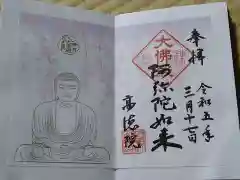 奉拝
令和五年
三月十七日
大佛
阿弥陀如来
高徳院